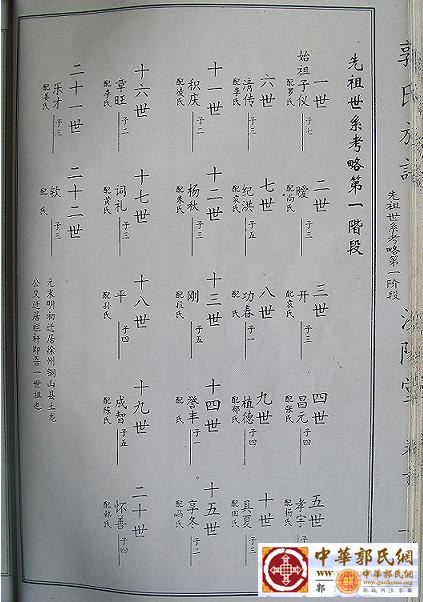 郭氏族譜
先祖世系考略第一阶段
先祖世系考略第一階段
一世
始祖子仪 子七
配罗氏
二世
暧 子三
配尚氏
三世
开 子三
配袁氏
四世
昌元 子四
配张氏
五世
孝宇 子二
配杨氏
六世
清传 子三
配李氏
七世
纪洪 子五
配袁氏
八世
功春 子一
九世
植德 子四
配郑氏
十世
具夏 子三
配田氏
十一世
积庆 子二
配凌氏
十二世
杨秋 子三
配朱氏
十三世
刚 子五
配段氏
十四世
誉丰 子一
十五世
享冬 子二
配冯氏
十六世
章旺 子二
配李氏
十七世
词礼 子三
配黄氏
十八世
平 子四
配孙氏
十九世
成智 子五
配陈氏
二十世
怀善 子四
配韩氏
二十一世
乐才 子三
配姜氏
二十二世
钦 子三
配 氏
元末明初迁居徐州铜山县土龙
公又迁居栏杆即吾一世祖也
中華郭氏網
中華郭氏網
www
郭